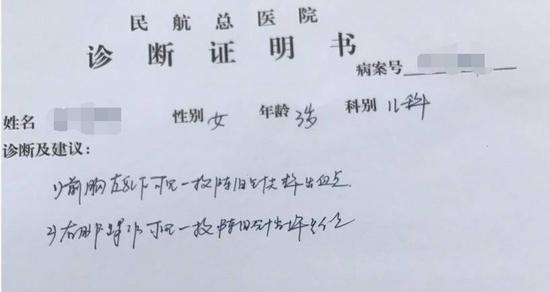 民航总医院
诊断证明书
病案号
姓名 性别 女 年龄 3岁 科别 儿科
诊断及建议:
1)前胸左乳下可见一枚陈旧针尖样出血点.
2)右 可见一枚陈旧针